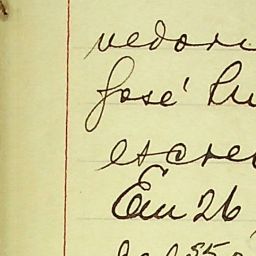 vedori
José Lu
escre
Em 26